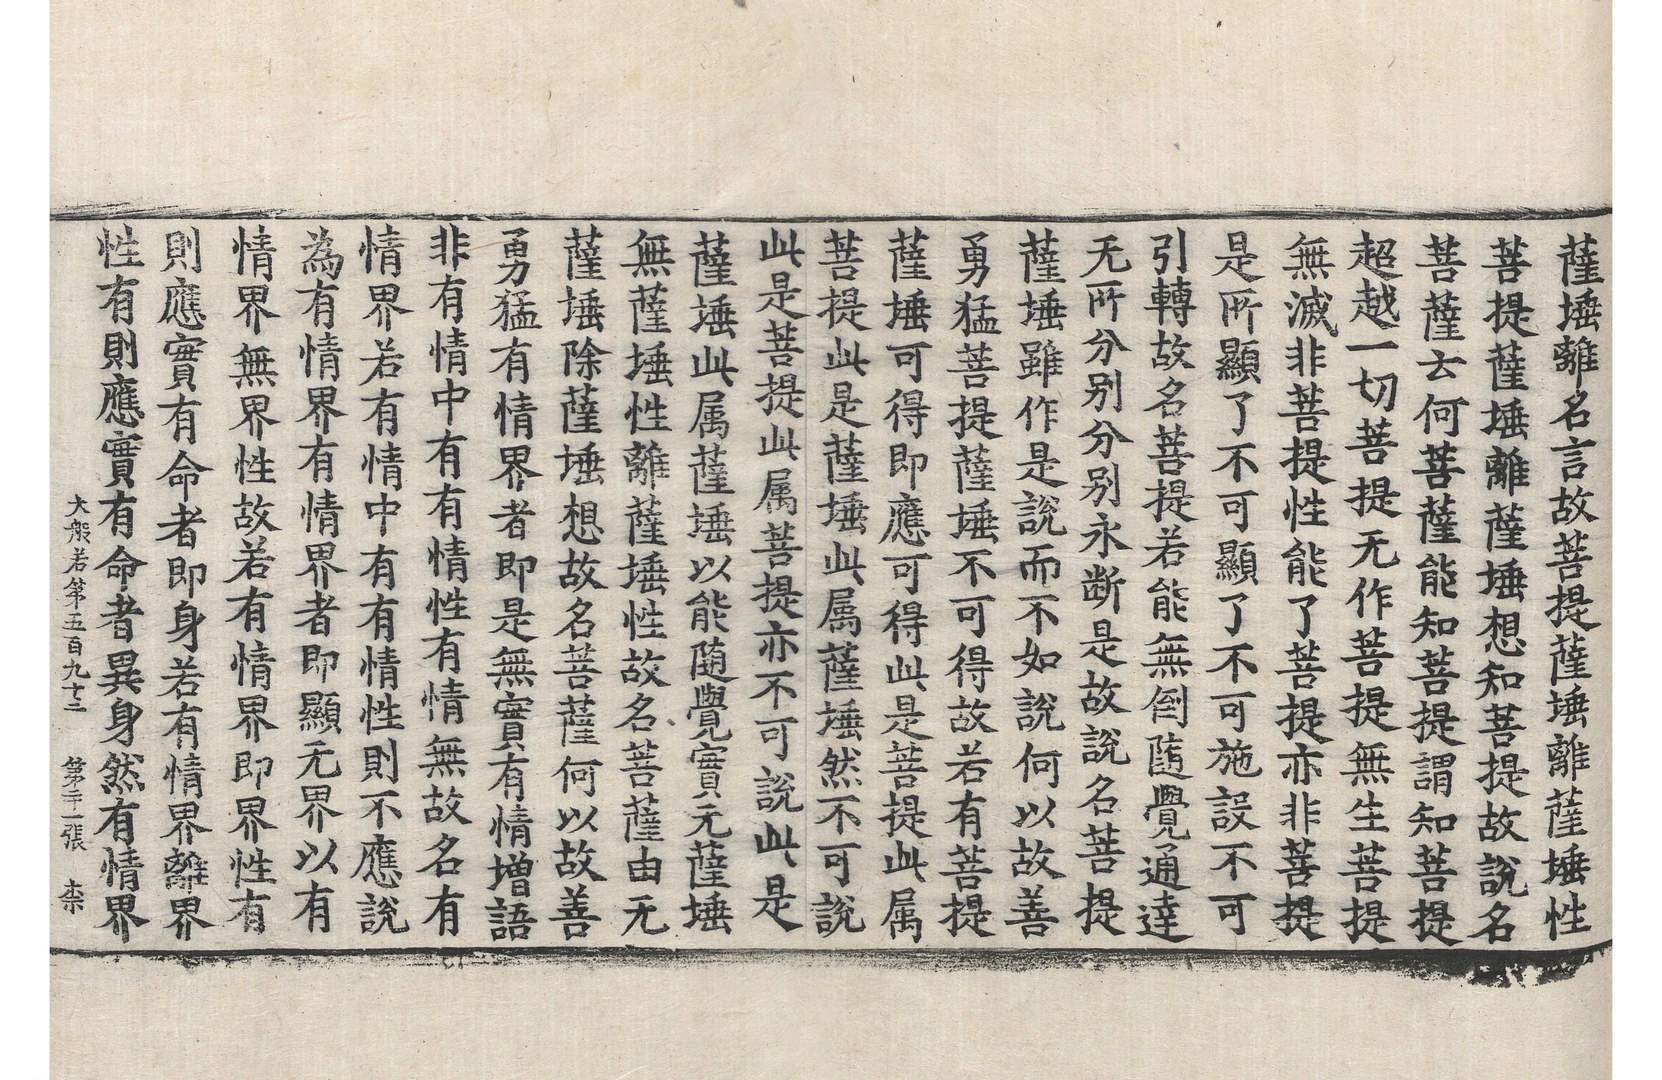 薩埵離名言故菩提薩埵離薩埵性
菩提薩埵離薩埵想知菩提故說名
菩薩云何菩薩能知菩提謂知菩提
超越一切菩提无作菩提無生菩提
無滅非菩提性能了菩提亦非菩提
是所顯了不可顯了不可施設不可
引轉故名菩提若能無倒隨覺通達
无所分別分別永斷是故說名菩提
薩埵雖作是說而不如說何以故善
勇猛菩提薩埵不可得故若有菩提
薩埵可得即應可得此是菩提此属
菩提此是薩埵此属薩埵然不可說
此是菩提此属菩提亦不可說此是
薩埵此属薩埵以能随覺實无薩埵
無薩埵性離薩埵性故名菩薩由无
薩埵除薩埵想故名菩薩何以故善
勇猛有情界者即是無實有情增語
非有情中有有情性有情無故名有
情界若有情中有有情性則不應說
為有情界有情界者即顯无界以有
情界無界性故若有情界即界性有
則應實有命者即身若有情界離界
性有則應實有命者異身然有情界
大般若第五百九十三 第二十一張 柰